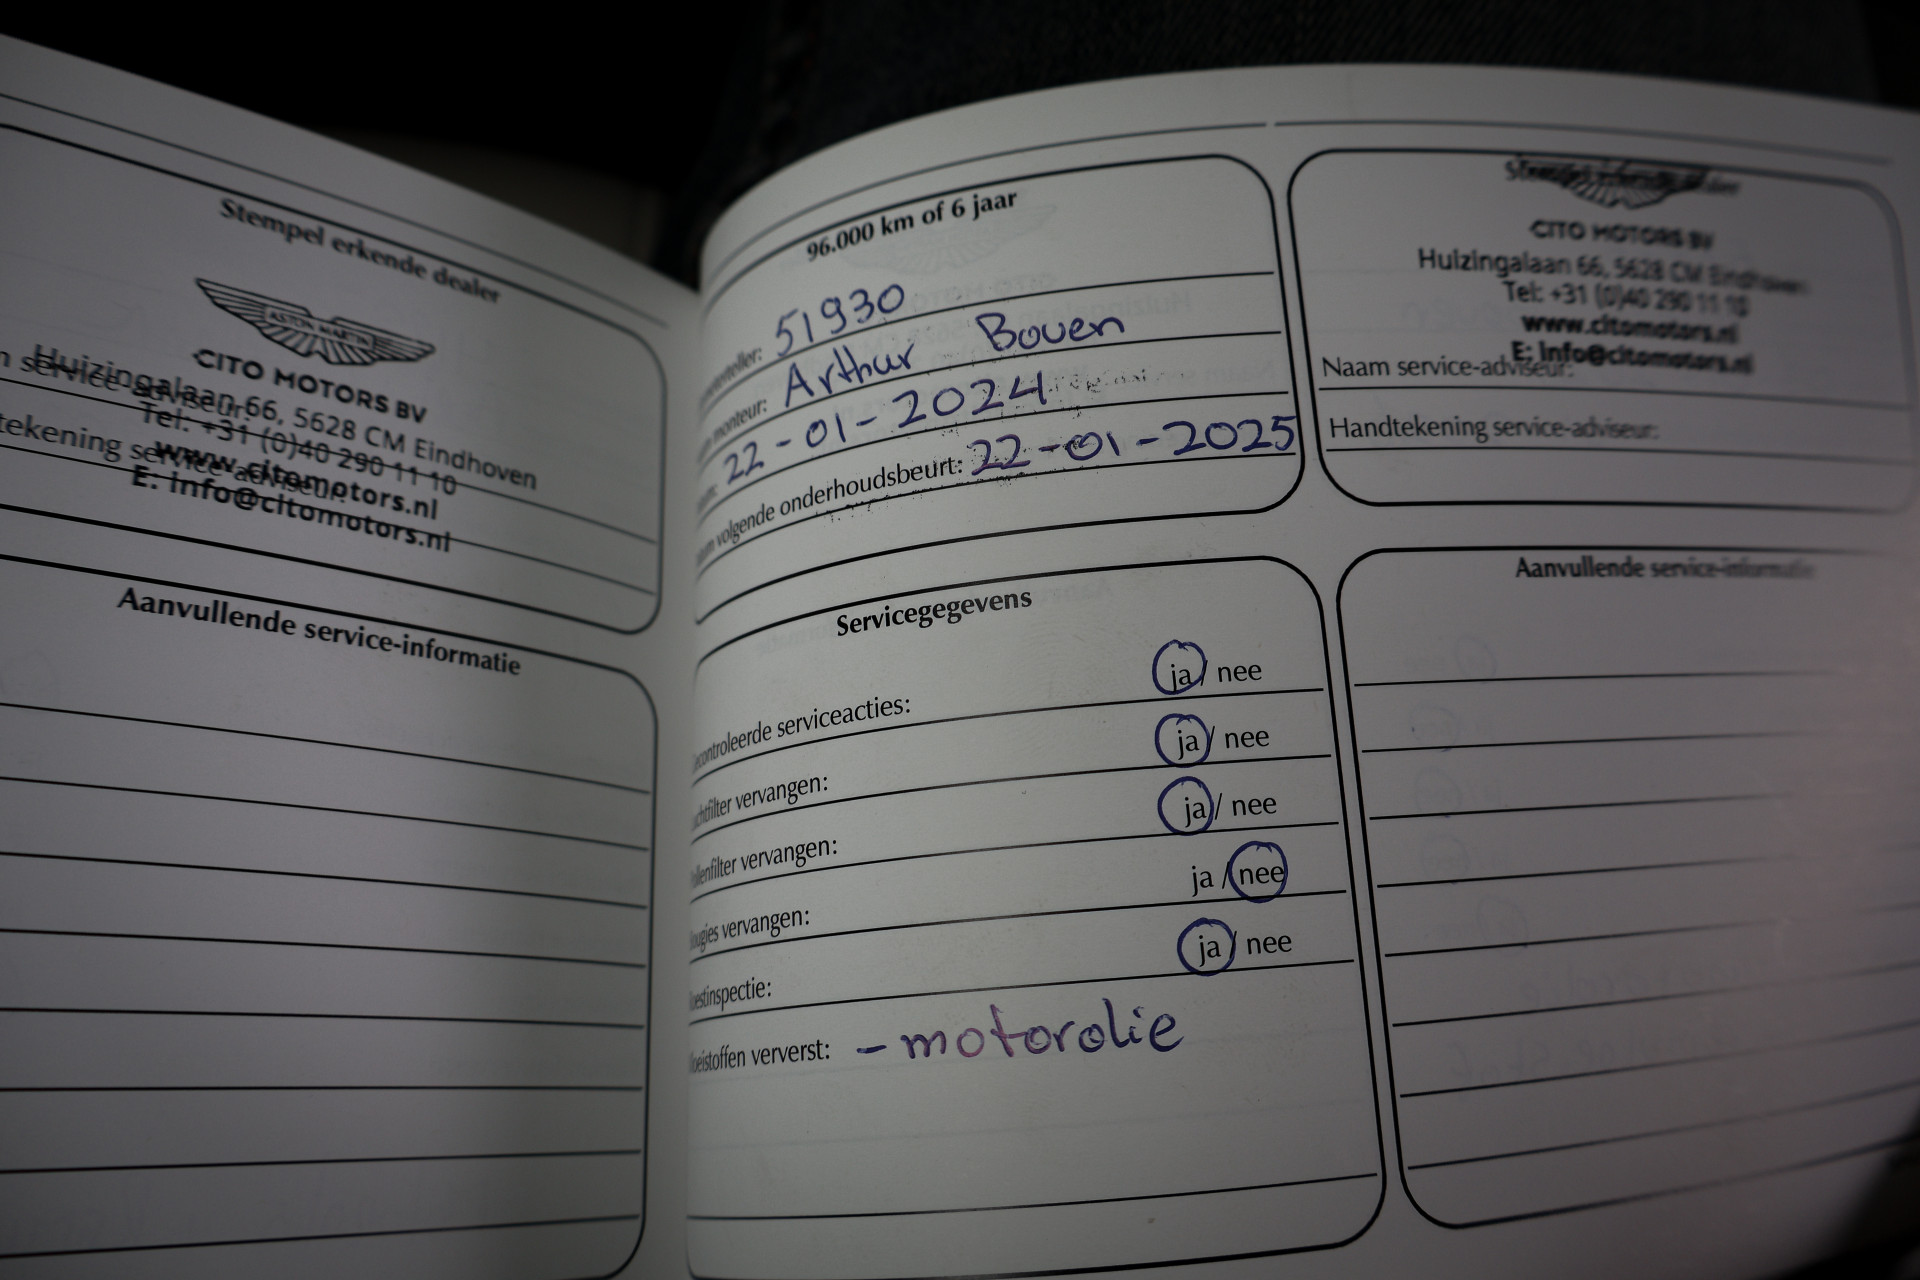 Stempel erkende dealer
ASTON MARTIN
CITO MOTORS BV
Huizingalaan 66, 5628 CM Eindhoven
Tel: +31 (0)40 290 11 10
www.citomotors.nl
E: info@citomotors.nl
service-adviseur:
service-adviseur:
Aanvullende service-informatie
96.000 km of 6 jaar
51930
monteur: Arthur Boven
22-01-2024
volgende onderhoudsbeurt: 22-01-2025
Servicegegevens
serviceacties: ja / nee
vervangen: ja / nee
vervangen: ja / nee
vervangen: ja / nee
ja / nee
ververst: - motorolie
CITO MOTORS BV
Huizingalaan 66, 5628 CM Eindhoven
Tel: +31 (0)40 290 11 10
www.citomotors.nl
E: info@citomotors.nl
Naam service-adviseur:
Handtekening service-adviseur:
Aanvullende service-informatie